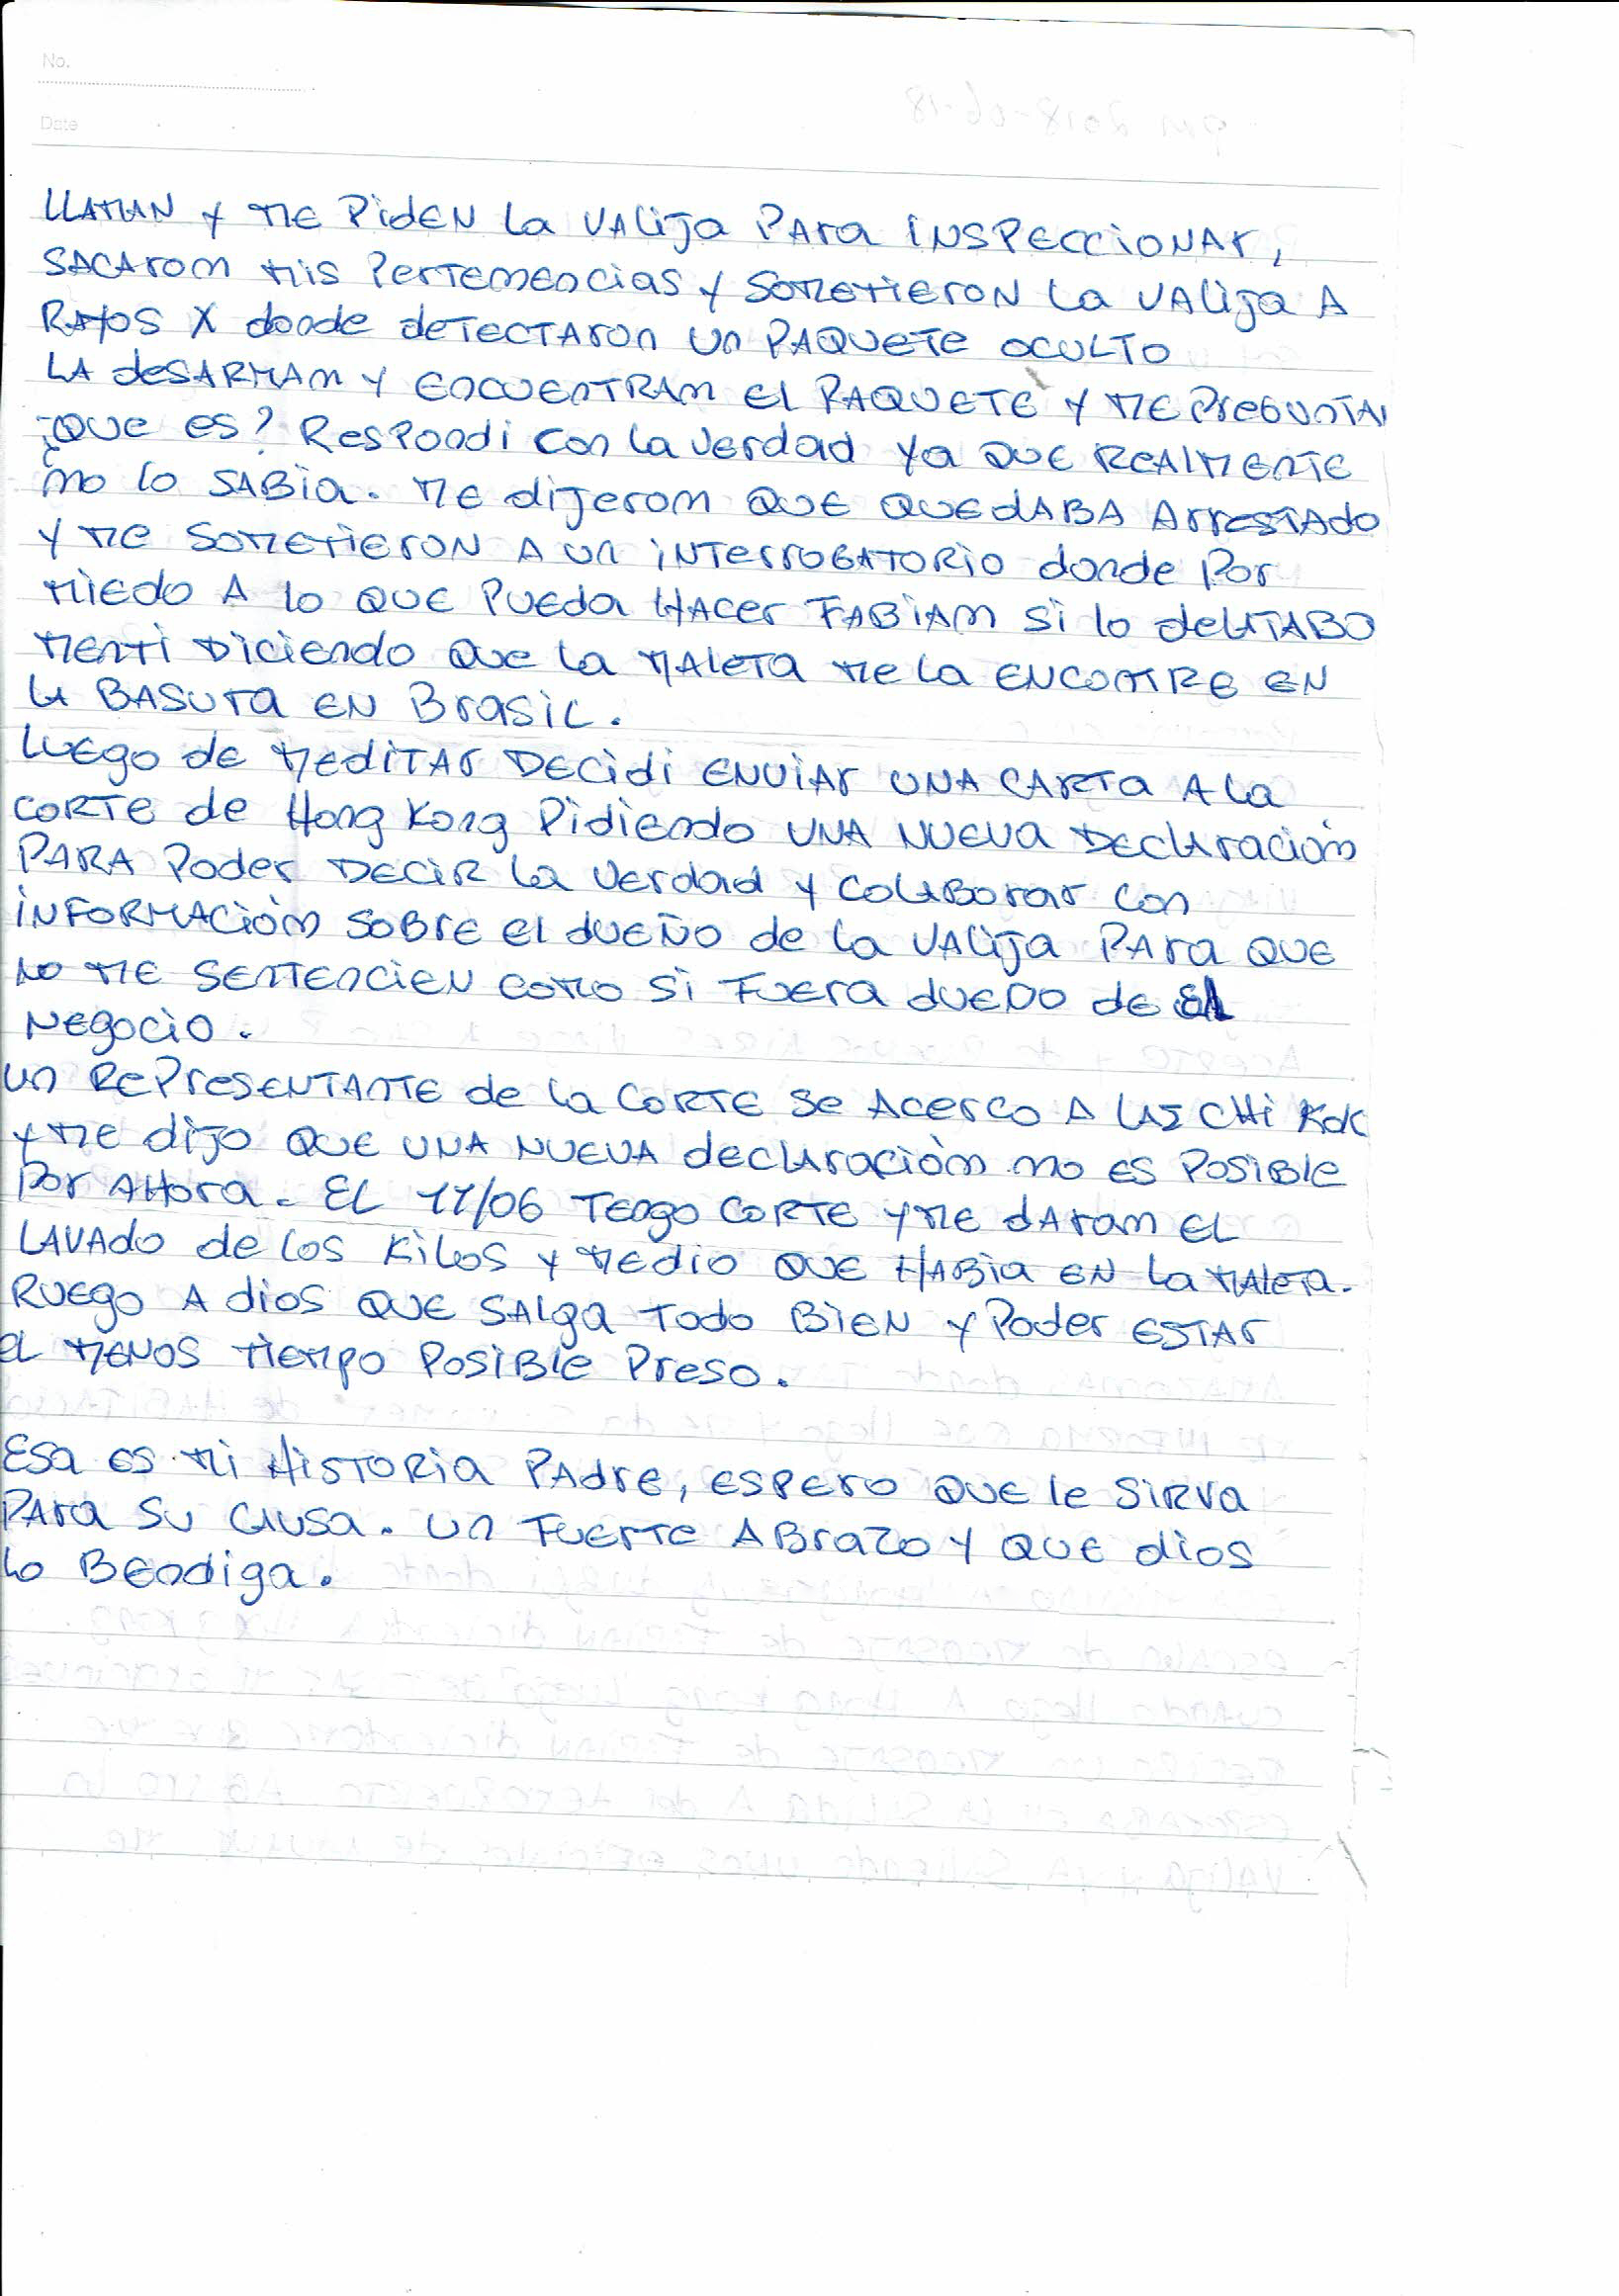 No.
Date
LLAMAN Y ME PIDEN LA VALIJA PARA INSPECCIONAR,
SACAROM MIS PERTEMENCIAS Y SOMETIERON LA VALIJA A
RAYOS X donde deTECTARON UN PAQUETE OCULTO
LA desARMAM Y ENCUENTRAM EL PAQUETE Y ME PREGUNTAN
¿QUE ES? RESPONDI CON LA VERDAD YA QUE REALMENTE
MO LO SABIA. ME DIJEROM QUE QUEDABA ARRESTADO
Y ME SOMETIERON A UN INTERROGATORIO donde POR
MIEDO A LO QUE PUEDA HACER FABIAM SI LO deLATABO
MENTI DICIENDO QUE LA MALETA ME LA ENCONTRE EN
LA BASURA EN BRASIL.
LUEGO de MEDITAR DECIDI ENVIAR UNA CARTA A LA
CORTE de Hong Kong PIDIENDO UNA NUEVA DECLARACIÓM
PARA PODER DECIR LA VERDAD Y COLABORAR CON
INFORMACIÓM SOBRE EL dUEÑO de LA VALIJA PARA QUE
NO ME SENTENCIEN COMO SI FUERA dUEÑO DE EL
NEGOCIO.
UN REPRESENTANTE de LA CORTE SE ACERCO A LAI CHI KOK
Y ME DIJO QUE UNA NUEVA declARACIÓM MO ES POSIBLE
POR AHORA. EL 11/06 TENGO CORTE Y ME dARAM EL
LAVADO de LOS KILOS Y MEDIO QUE HABIA EN LA MALETA.
RUEGO A dIOS QUE SALGA TODO BIEN Y PODER ESTAR
EL MENOS TIEMPO POSIBLE PRESO.
ESA ES MI HISTORIA PADRE, ESPERO QUE LE SIRVA
PARA SU CAUSA. UN FUERTE ABRAZO Y QUE dIOS
LO BENDIGA.